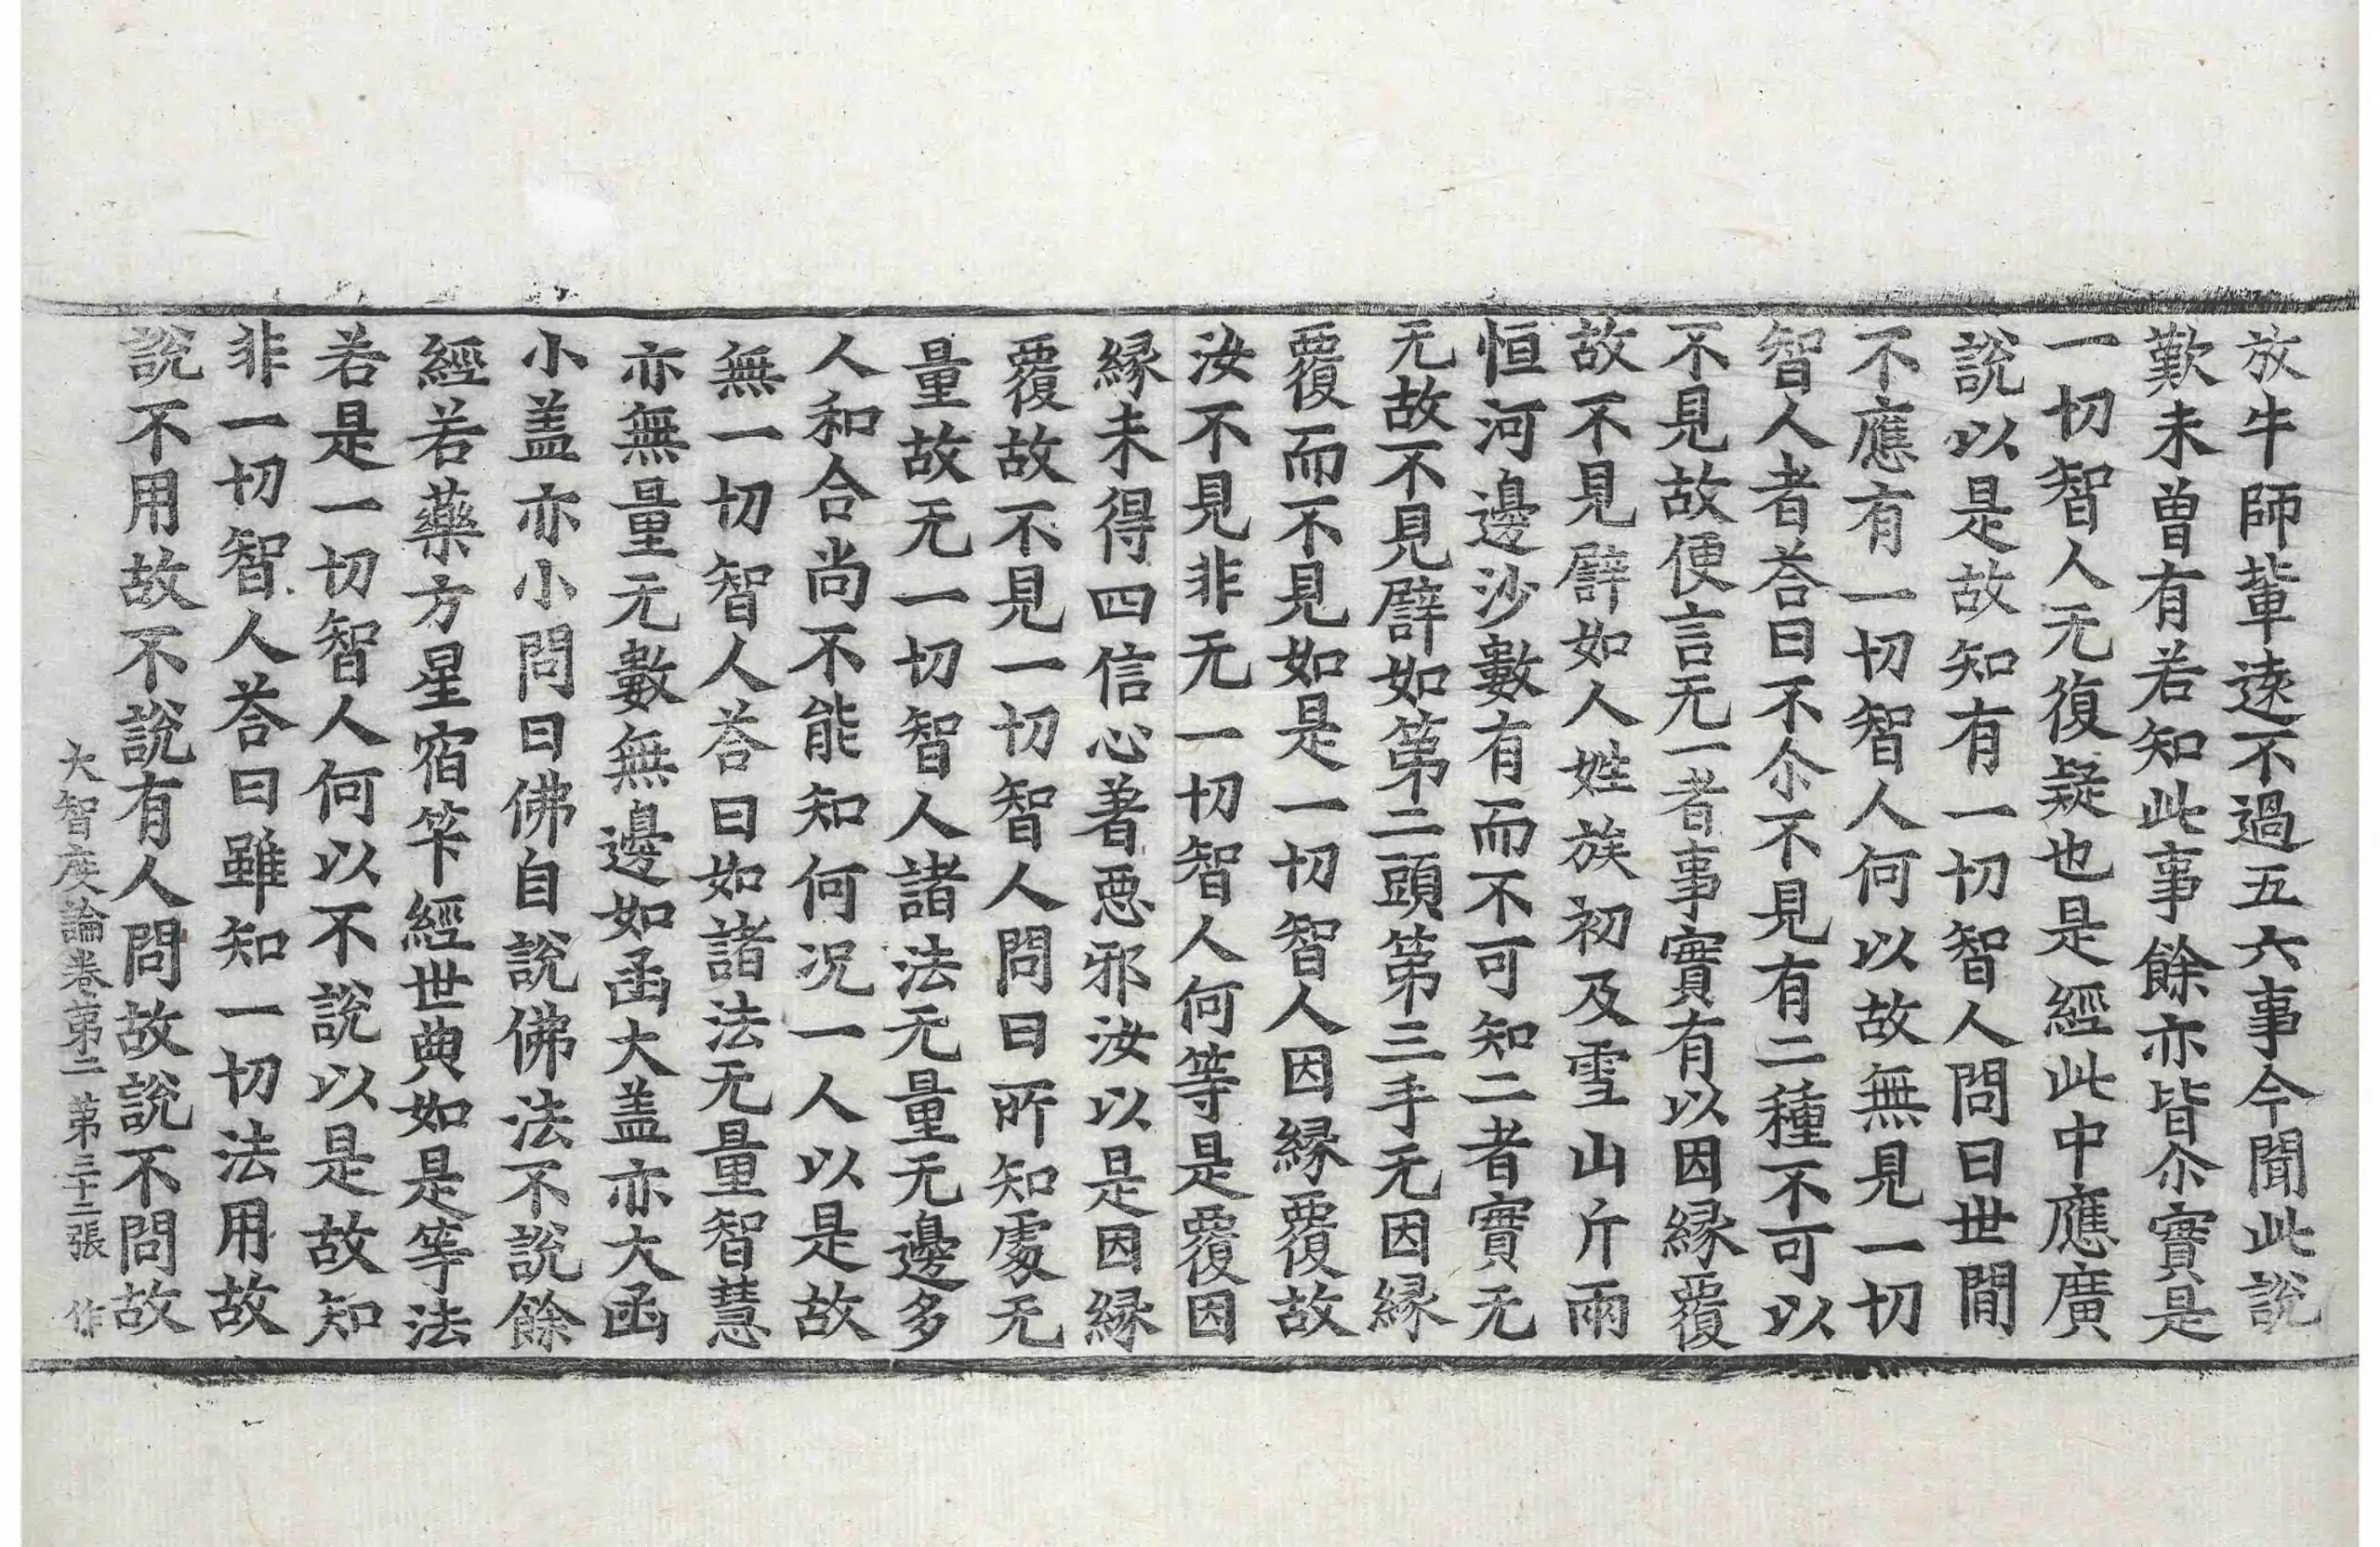 放牛師軰遠不過五六事今聞此說
歎未曾有若知此事餘亦皆尒實是
一切智人无復疑也是經此中應廣
說以是故知有一切智人問曰世間
不應有一切智人何以故無見一切
智人者荅曰不尒不見有二種不可以
不見故便言无一者事實有以因縁覆
故不見譬如人姓族初及雪山斤兩
恒河邊沙數有而不可知二者實无
无故不見譬如第二頭第三手无因縁
覆而不見如是一切智人因縁覆故
汝不見非无一切智人何等是覆因
縁未得四信心著惡邪汝以是因縁
覆故不見一切智人問曰所知處无
量故无一切智人諸法无量无邊多
人和合尚不能知何况一人以是故
無一切智人荅曰如諸法无量智慧
亦無量无數無邊如函大盖亦大函
小盖亦小問曰佛自說佛法不說餘
經若藥方星宿筭經世典如是等法
若是一切智人何以不說以是故知
非一切智人荅曰雖知一切法用故
說不用故不說有人問故說不問故
大智度論卷第二 第三十二張 作